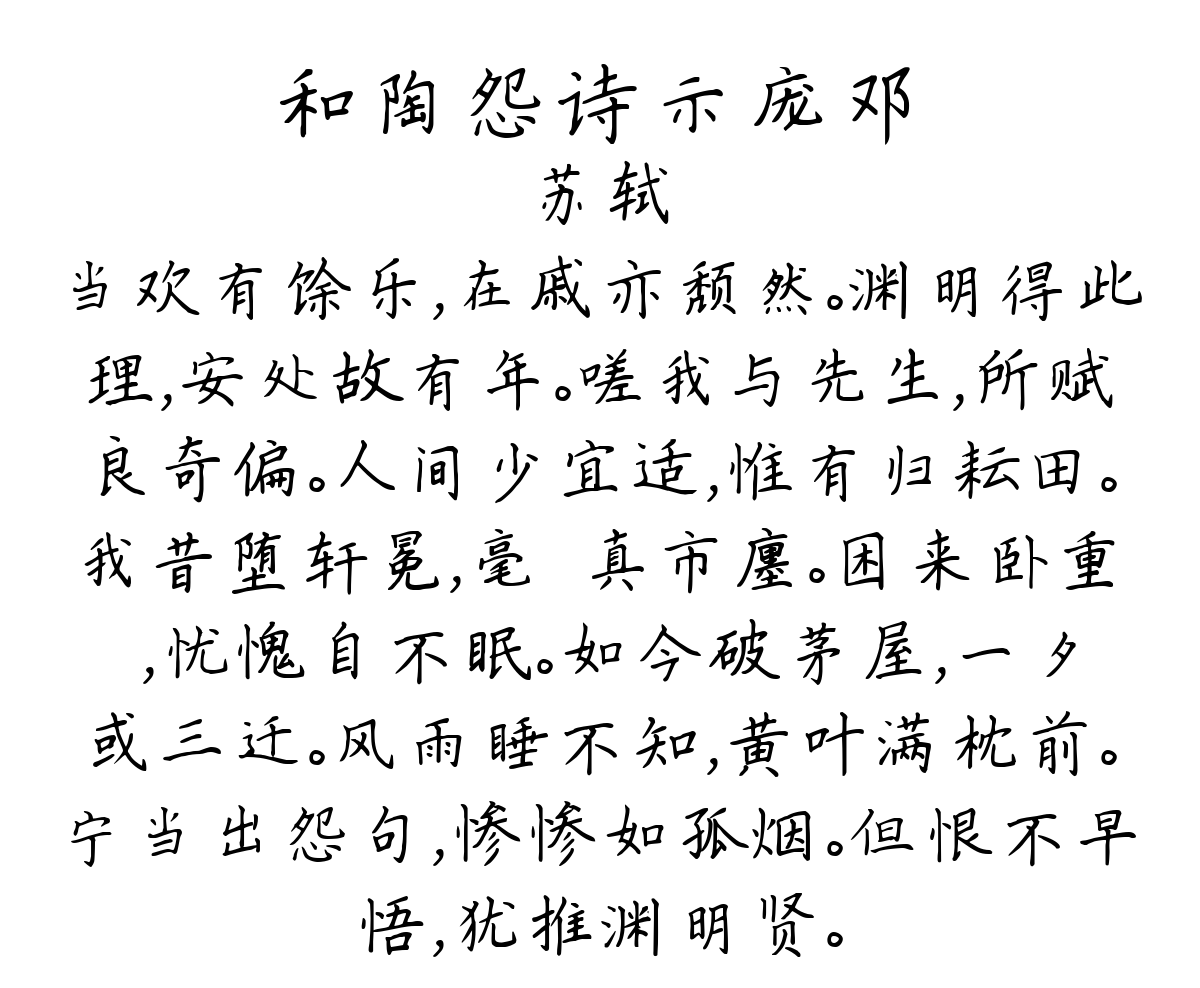 和陶怨诗示庞邓
苏轼
当欢有馀乐,在戚亦颓然。渊明得此
理,安处故有年。嗟我与先生,所赋
良奇偏。人间少宜适,惟有归耘田。
我昔堕轩冕,毫 真市廛。困来卧重
,忧愧自不眠。如今破茅屋,一夕
或三迁。风雨睡不知,黄叶满枕前。
宁当出怨句,惨惨如孤烟。但恨不早
悟,犹推渊明贤。